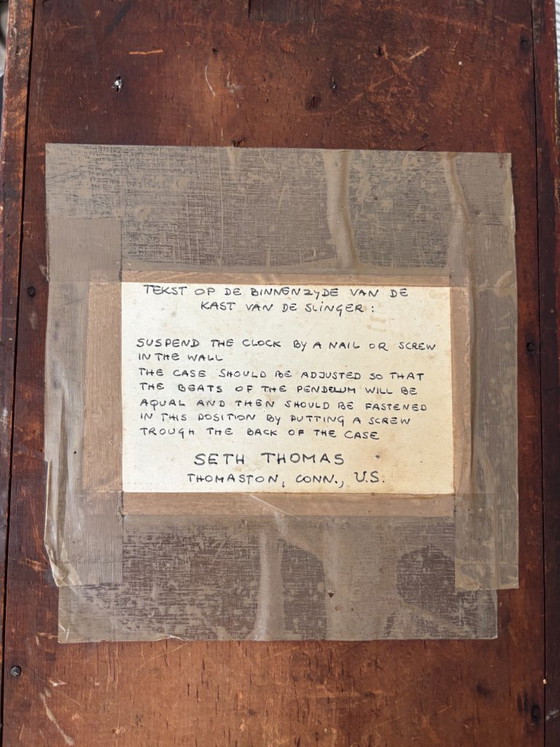 TEKST OP DE BINNENZYDE VAN DE
KAST VAN DE SLINGER:
SUSPEND THE CLOCK BY A NAIL OR SCREW
IN THE WALL
THE CASE SHOULD BE ADJUSTED SO THAT
THE BEATS OF THE PENDELUM WILL BE
AQUAL AND THEN SHOULD BE FASTENED
IN THIS POSITION BY PUTTING A SCREW
TROUGH THE BACK OF THE CASE
SETH THOMAS
THOMASTON, CONN., U.S.